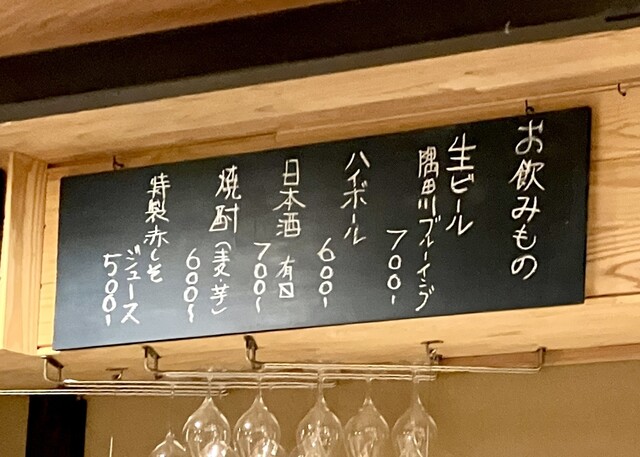 お飲みもの
生ビール
隅田川ブルーイング
700-
ハイボール
600-
日本酒 有口
700~
焼酎(麦・芋)
600~
特製赤しそ
ジュース
500-